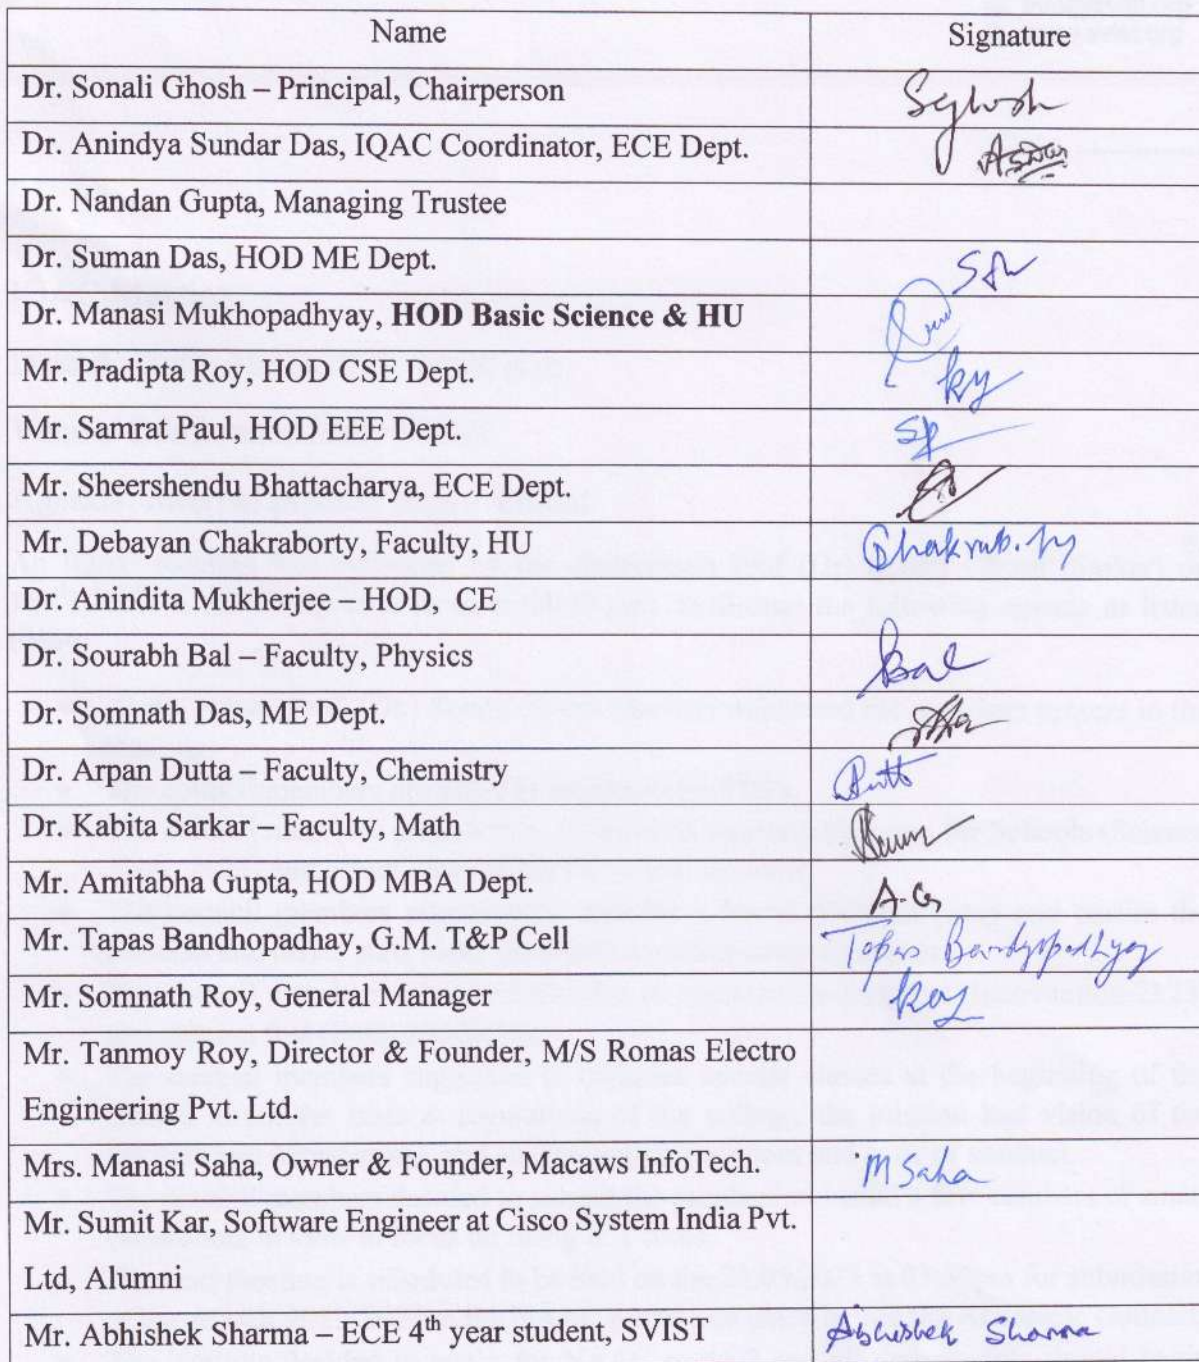 Name Signature
Dr. Sonali Ghosh – Principal, Chairperson SGhosh
Dr. Anindya Sundar Das, IQAC Coordinator, ECE Dept. ASDas
Dr. Nandan Gupta, Managing Trustee
Dr. Suman Das, HOD ME Dept.
Dr. Manasi Mukhopadhyay, HOD Basic Science & HU
Mr. Pradipta Roy, HOD CSE Dept.
Mr. Samrat Paul, HOD EEE Dept. SP
Mr. Sheershendu Bhattacharya, ECE Dept.
Mr. Debayan Chakraborty, Faculty, HU
Dr. Anindita Mukherjee – HOD, CE
Dr. Sourabh Bal – Faculty, Physics Bal
Dr. Somnath Das, ME Dept.
Dr. Arpan Dutta – Faculty, Chemistry Dutta
Dr. Kabita Sarkar – Faculty, Math
Mr. Amitabha Gupta, HOD MBA Dept. A.G
Mr. Tapas Bandhopadhay, G.M. T&P Cell Tapas Bandyopadhyay
Mr. Somnath Roy, General Manager Roy
Mr. Tanmoy Roy, Director & Founder, M/S Romas Electro
Engineering Pvt. Ltd.
Mrs. Manasi Saha, Owner & Founder, Macaws InfoTech. M Saha
Mr. Sumit Kar, Software Engineer at Cisco System India Pvt.
Ltd, Alumni
Mr. Abhishek Sharma – ECE 4th year student, SVIST Abhishek Sharma